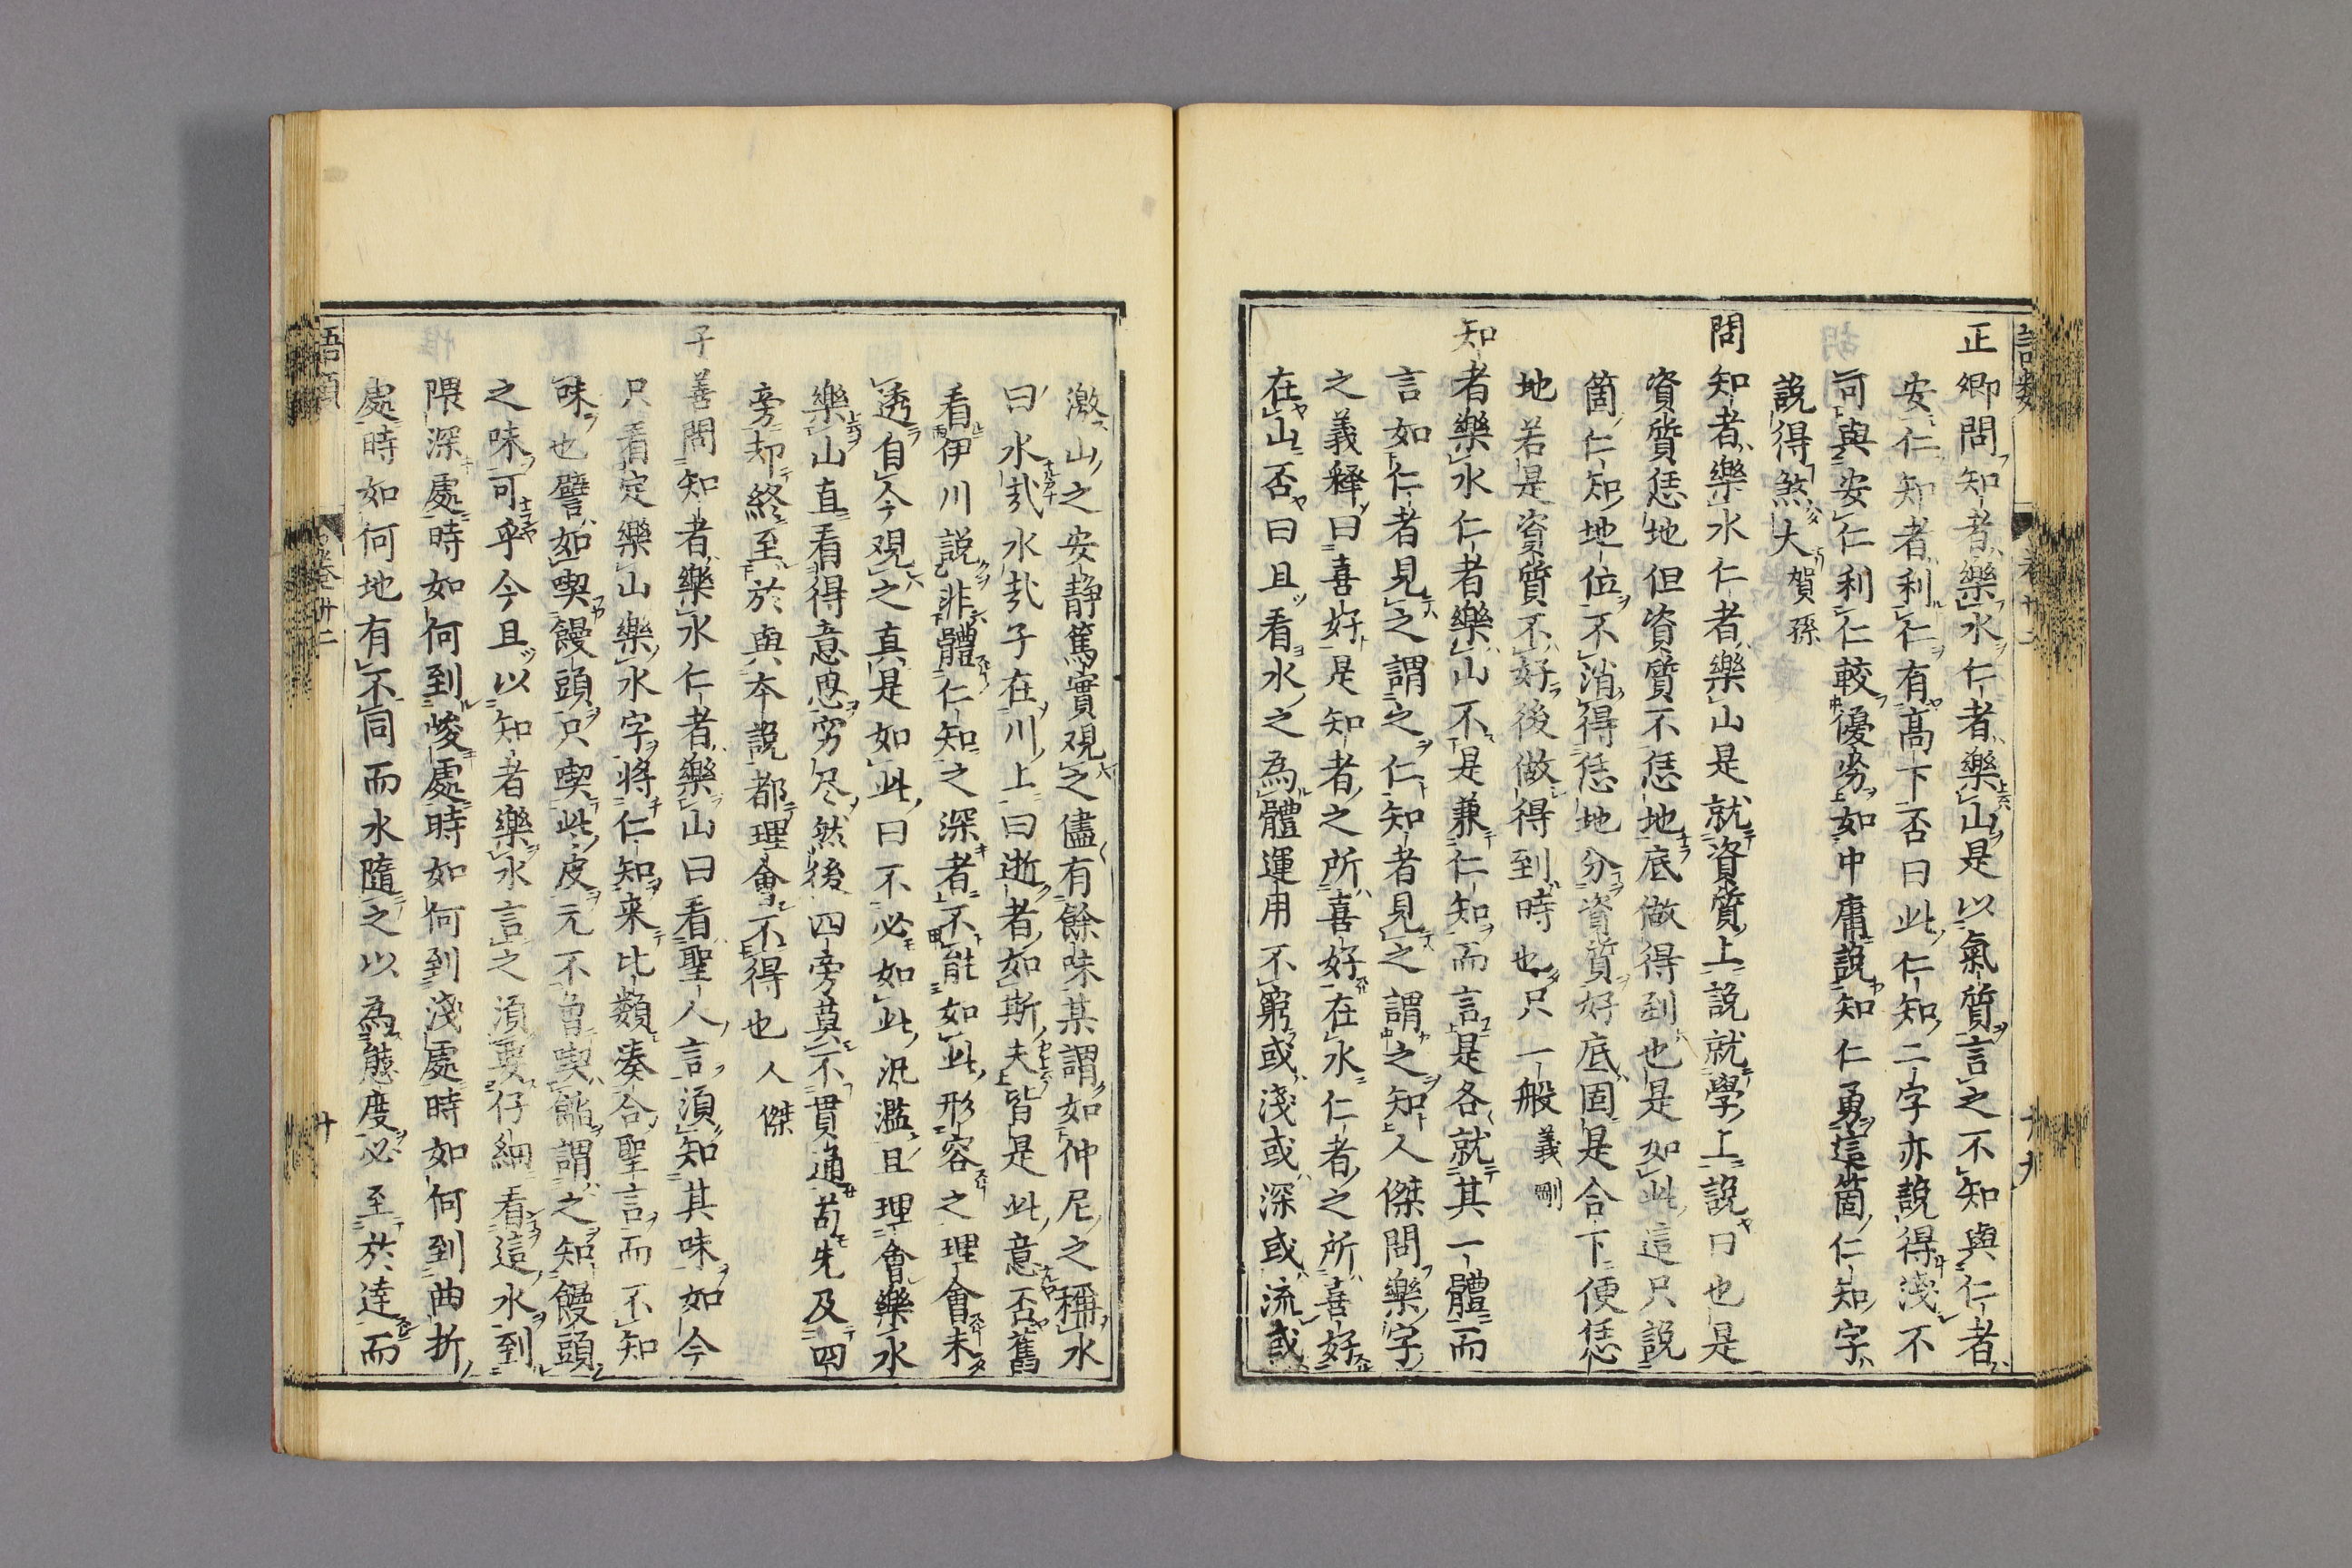 正卿問知者樂水仁者樂山是以氣質言之不知與仁者
安仁知者利仁有高下否曰此仁知二字亦說得淺不
可與安仁利仁較優劣如中庸說知仁勇這箇仁知字
說得煞大 賀孫
問知者樂水仁者樂山是就資質上說就學上說曰也是
資質恁地但資質不恁地底做得到也是如此這只說
箇仁知地位不消得恁地分資質好底固是合下便恁
地若是資質不好後做得到時也只一般 義剛
知者樂水仁者樂山不是兼仁知而言是各就其一體而
言如仁者見之謂之仁知者見之謂之知人傑問樂字
之義釋曰喜好是知者之所喜好在水仁者之所喜好
在山否曰且看水之為體運用不窮或淺或深或流或
激山之安靜篤實觀之儘有餘味某謂如仲尼之稱水
曰水哉水哉子在川上曰逝者如斯夫皆是此意否舊
看伊川說非體仁知之深者不能如此形容之理會未
透自今觀之真是如此曰不必如此泥濫且理會樂水
樂山直看得意思窮尽然後四旁莫不貫通苟先及四
旁却終至於與本說都理會不得也 人傑
子善問知者樂水仁者樂山曰看聖人言須知其味如今
只看定樂山樂水字將仁知来比類湊合聖言而不知
味也譬如喫饅頭只喫此皮元不曾喫餡謂之知饅頭
之味可乎今且以知者樂水言之須要仔細看這水到
隈深處時如何到峻處時如何到淺處時如何到曲折
處時如何地有不同而水隨之以為態度必至於達而
語類
卷廿二
廿